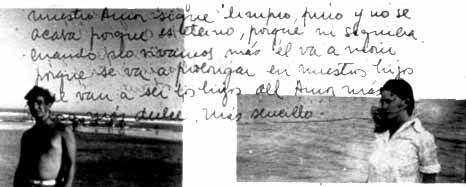 nuestro Amor sigue limpio, puro y no se
acaba porque es eterno, porque ni siquiera
cuando no vivamos más él va a morir
porque se va a prolongar en nuestros hijos
que van a ser los hijos del Amor más
más dulce, más sencillo.